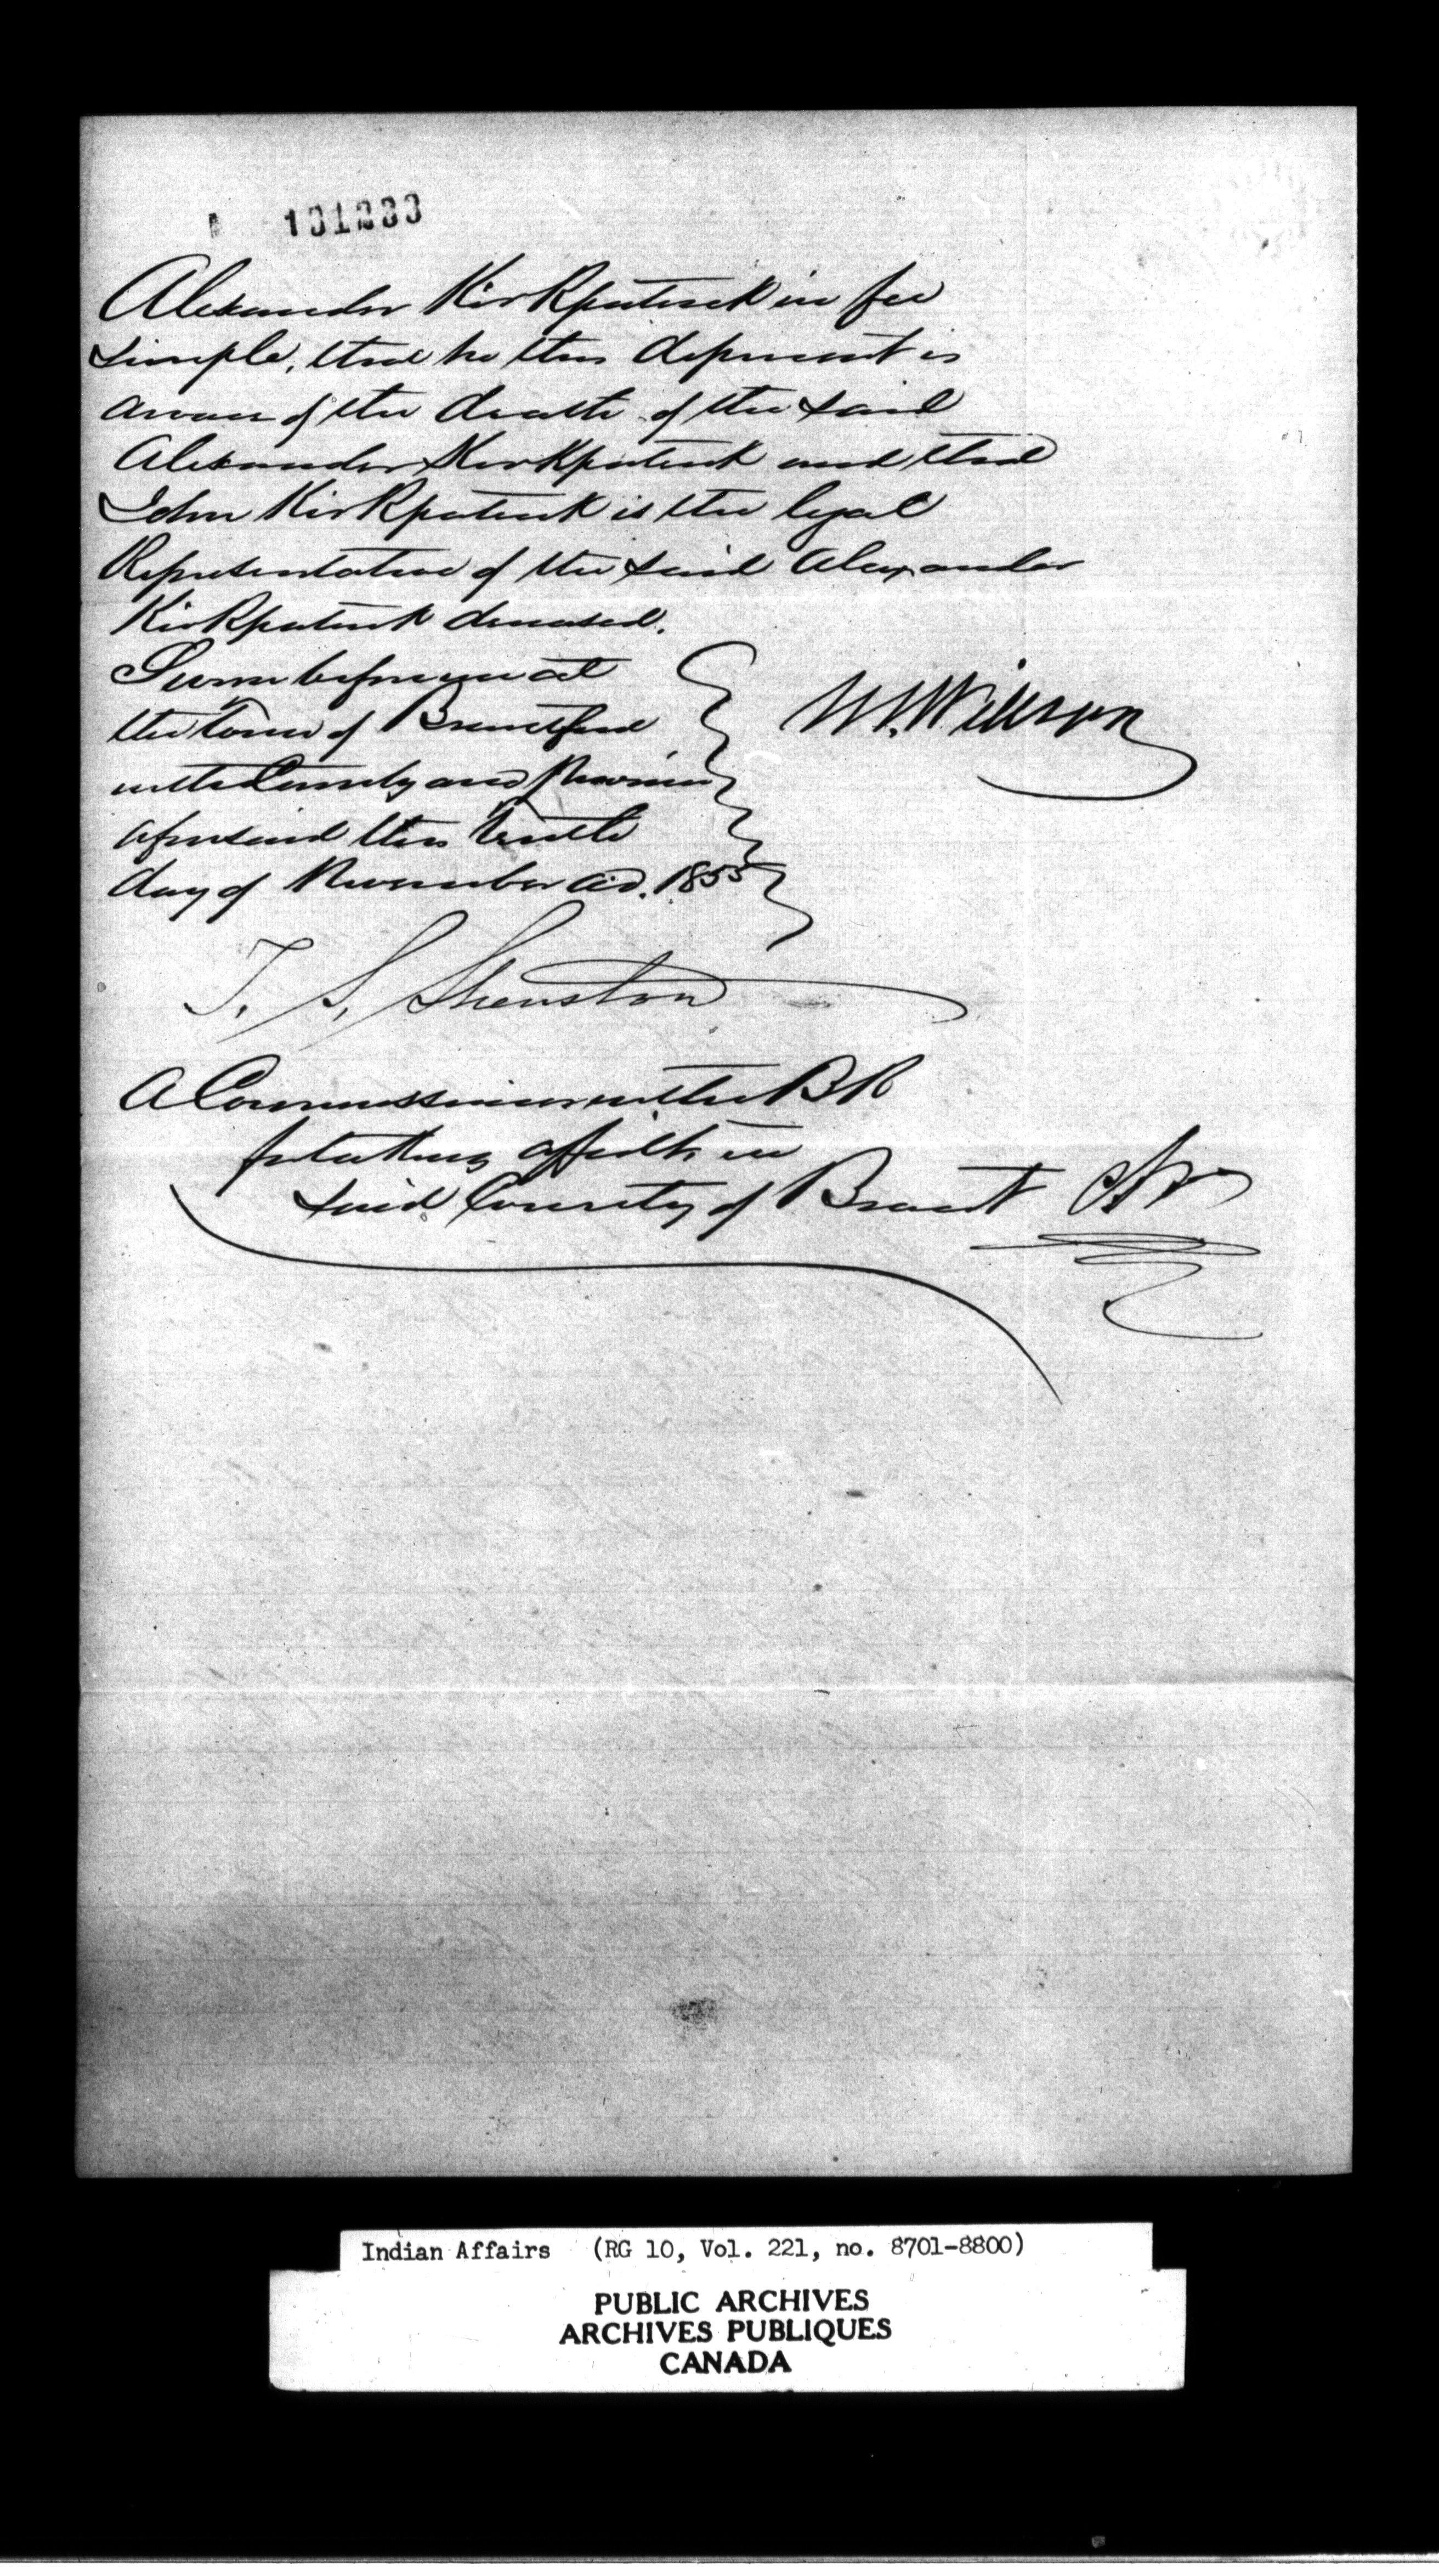 131233
Alexander Kirkpatrick in fee
simple, that he this deponent is
aware of the death of the said
Alexander Kirkpatrick and that
John Kirkpatrick is the legal
Representative of the said Alexander
Kirkpatrick deceased.
Sworn before me at
the Town of Brantford
in the County and Province
aforesaid this
day of November AD. 1855
W. Wilson
T. S. Shenston
A Commissioner in the BR
for taking affidts in
said County of Brant &c
Indian Affairs (RG 10, Vol. 221, no. 8701-8800)
PUBLIC ARCHIVES
ARCHIVES PUBLIQUES
CANADA